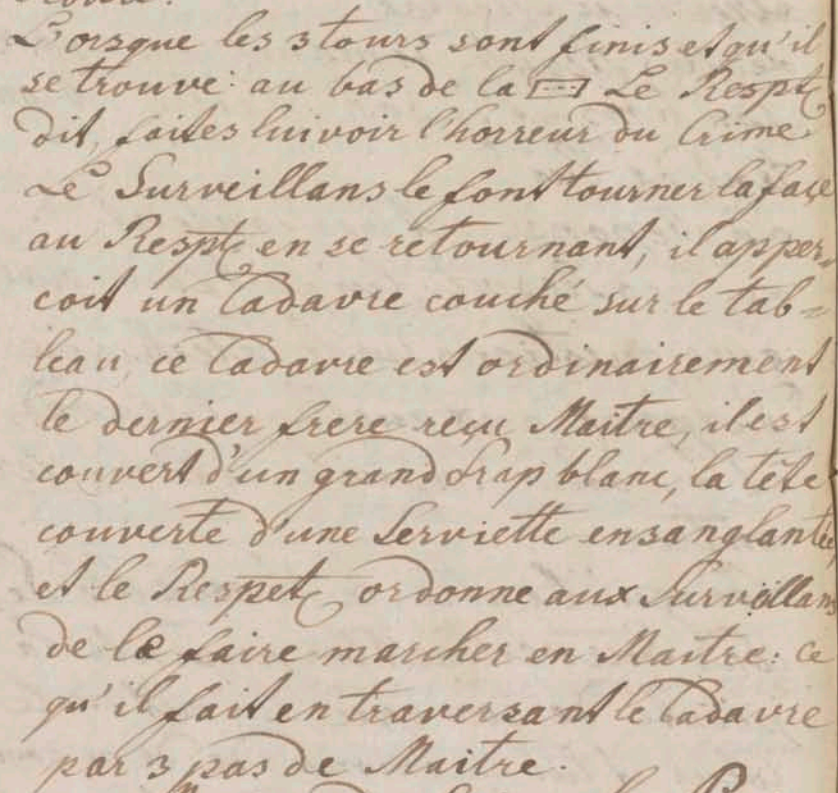 Lorsque les 3 tours sont finis et qu'il
se trouve au bas de la Le Respt
dit, faites lui voir l'horreur du Crime
Le Surveillans le font tourner la face
au Respt en se retournant, il apper,,
coit un Cadavre couché sur le tab=
leau, ce Cadavre est ordinairement
le dernier frere recu Maitre, il est
couvert d'un grand drap blanc, la tête
couverte d'une Serviette ensanglantée
et le Respet ordonne aux Surveillans
de le faire marcher en Maitre: ce
qu'il fait en traversant le Cadavre
par 3 pas de Maitre.